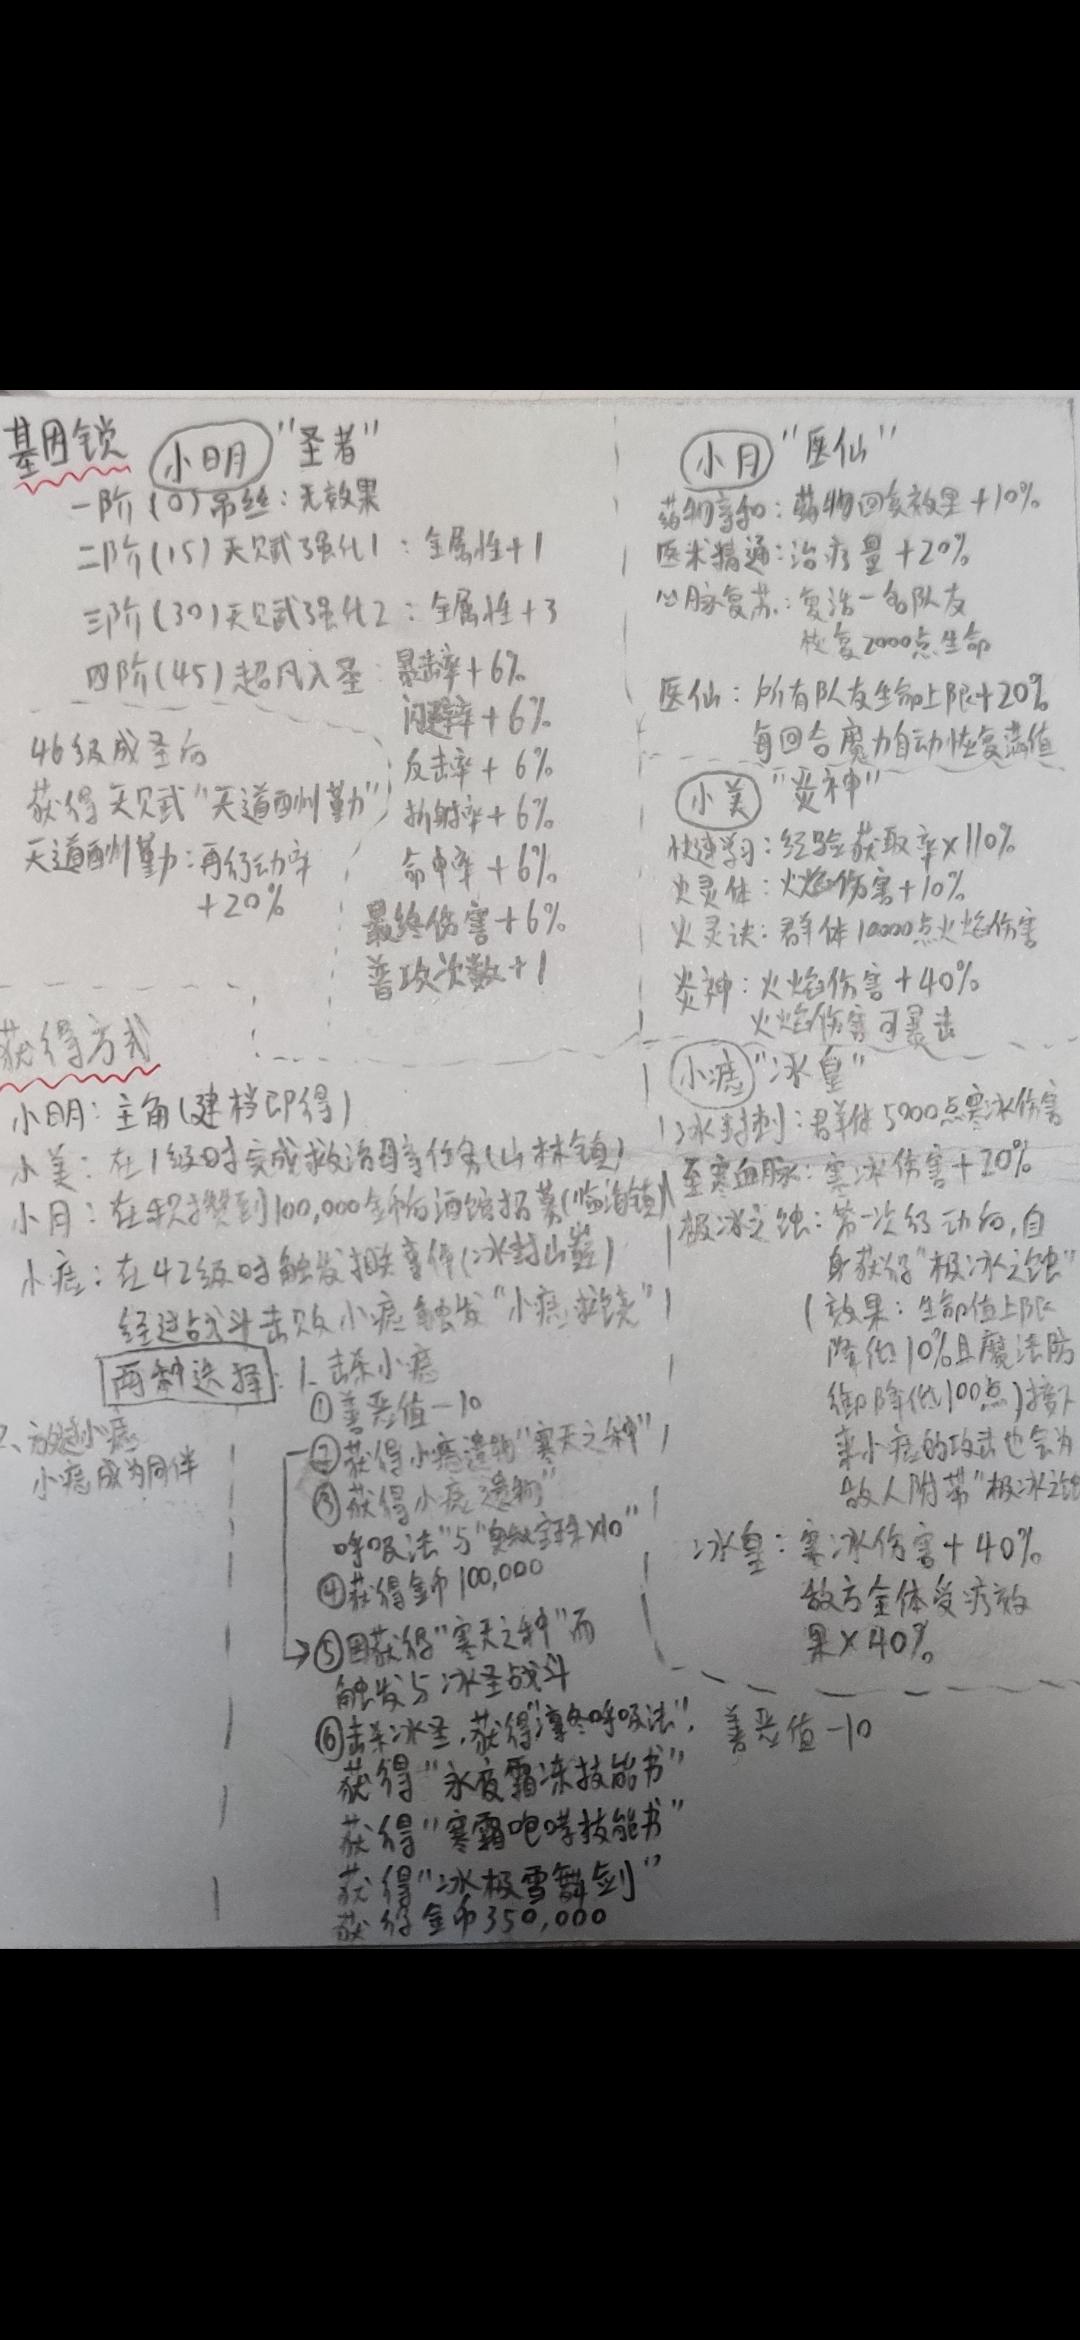 基因锁
小明 "圣者"
一阶(0)吊丝:无效果
二阶(15)天赋强化1:全属性+1
三阶(30)天赋强化2:全属性+3
四阶(45)超凡入圣:暴击率+6%
闪避率+6%
反击率+6%
折射率+6%
命中率+6%
最终伤害+6%
普攻次数+1
46级成圣后
获得天赋"天道酬勤"
天道酬勤:再行动率
+20%
小月 "医仙"
药物亲和:药物回复效果+10%
医术精通:治疗量+20%
心脉复苏:复活一名队友
恢复2000点生命
医仙:所有队友生命上限+20%
每回合魔力自动恢复满值
小美 "炎神"
快速学习:经验获取率×110%
火灵体:火焰伤害+10%
火灵诀:群体10000点火焰伤害
炎神:火焰伤害+40%
火焰伤害可暴击
小痣 "冰皇"
冰封刺:群体5000点寒冰伤害
至寒血脉:寒冰伤害+20%
极冰之蚀:第一次行动后,自
身获得"极冰之蚀"
(效果:生命值上限
降低10%且魔法防
御降低100点)接下
来小痣的攻击也会为
敌人附带"极冰之蚀
冰皇:寒冰伤害+40%
敌方全体受疗效
果×40%
获得方式
小明:主角(建档即得)
小美:在1级时完成救治母亲任务(山林镇)
小月:在积攒到100,000金币后酒馆招募(临泊镇)
小痣:在42级时触发相关事件(冰封山巅)
经过战斗击败小痣触发"小痣求饶"
两种选择:1.击杀小痣
①善恶值-10
②获得小痣遗物"寒天之种"
③获得小痣遗物"
呼吸法"与"奥数宝珠×10"
④获得金币100,000
⑤因获得"寒天之种"而
触发与冰圣战斗
⑥击杀冰圣,获得"凛冬呼吸法",善恶值-10
获得"永夜霜冻技能书"
获得"寒霜咆哮技能书"
获得"冰极雪舞剑"
获得金币350,000
2、放过小痣
小痣成为同伴